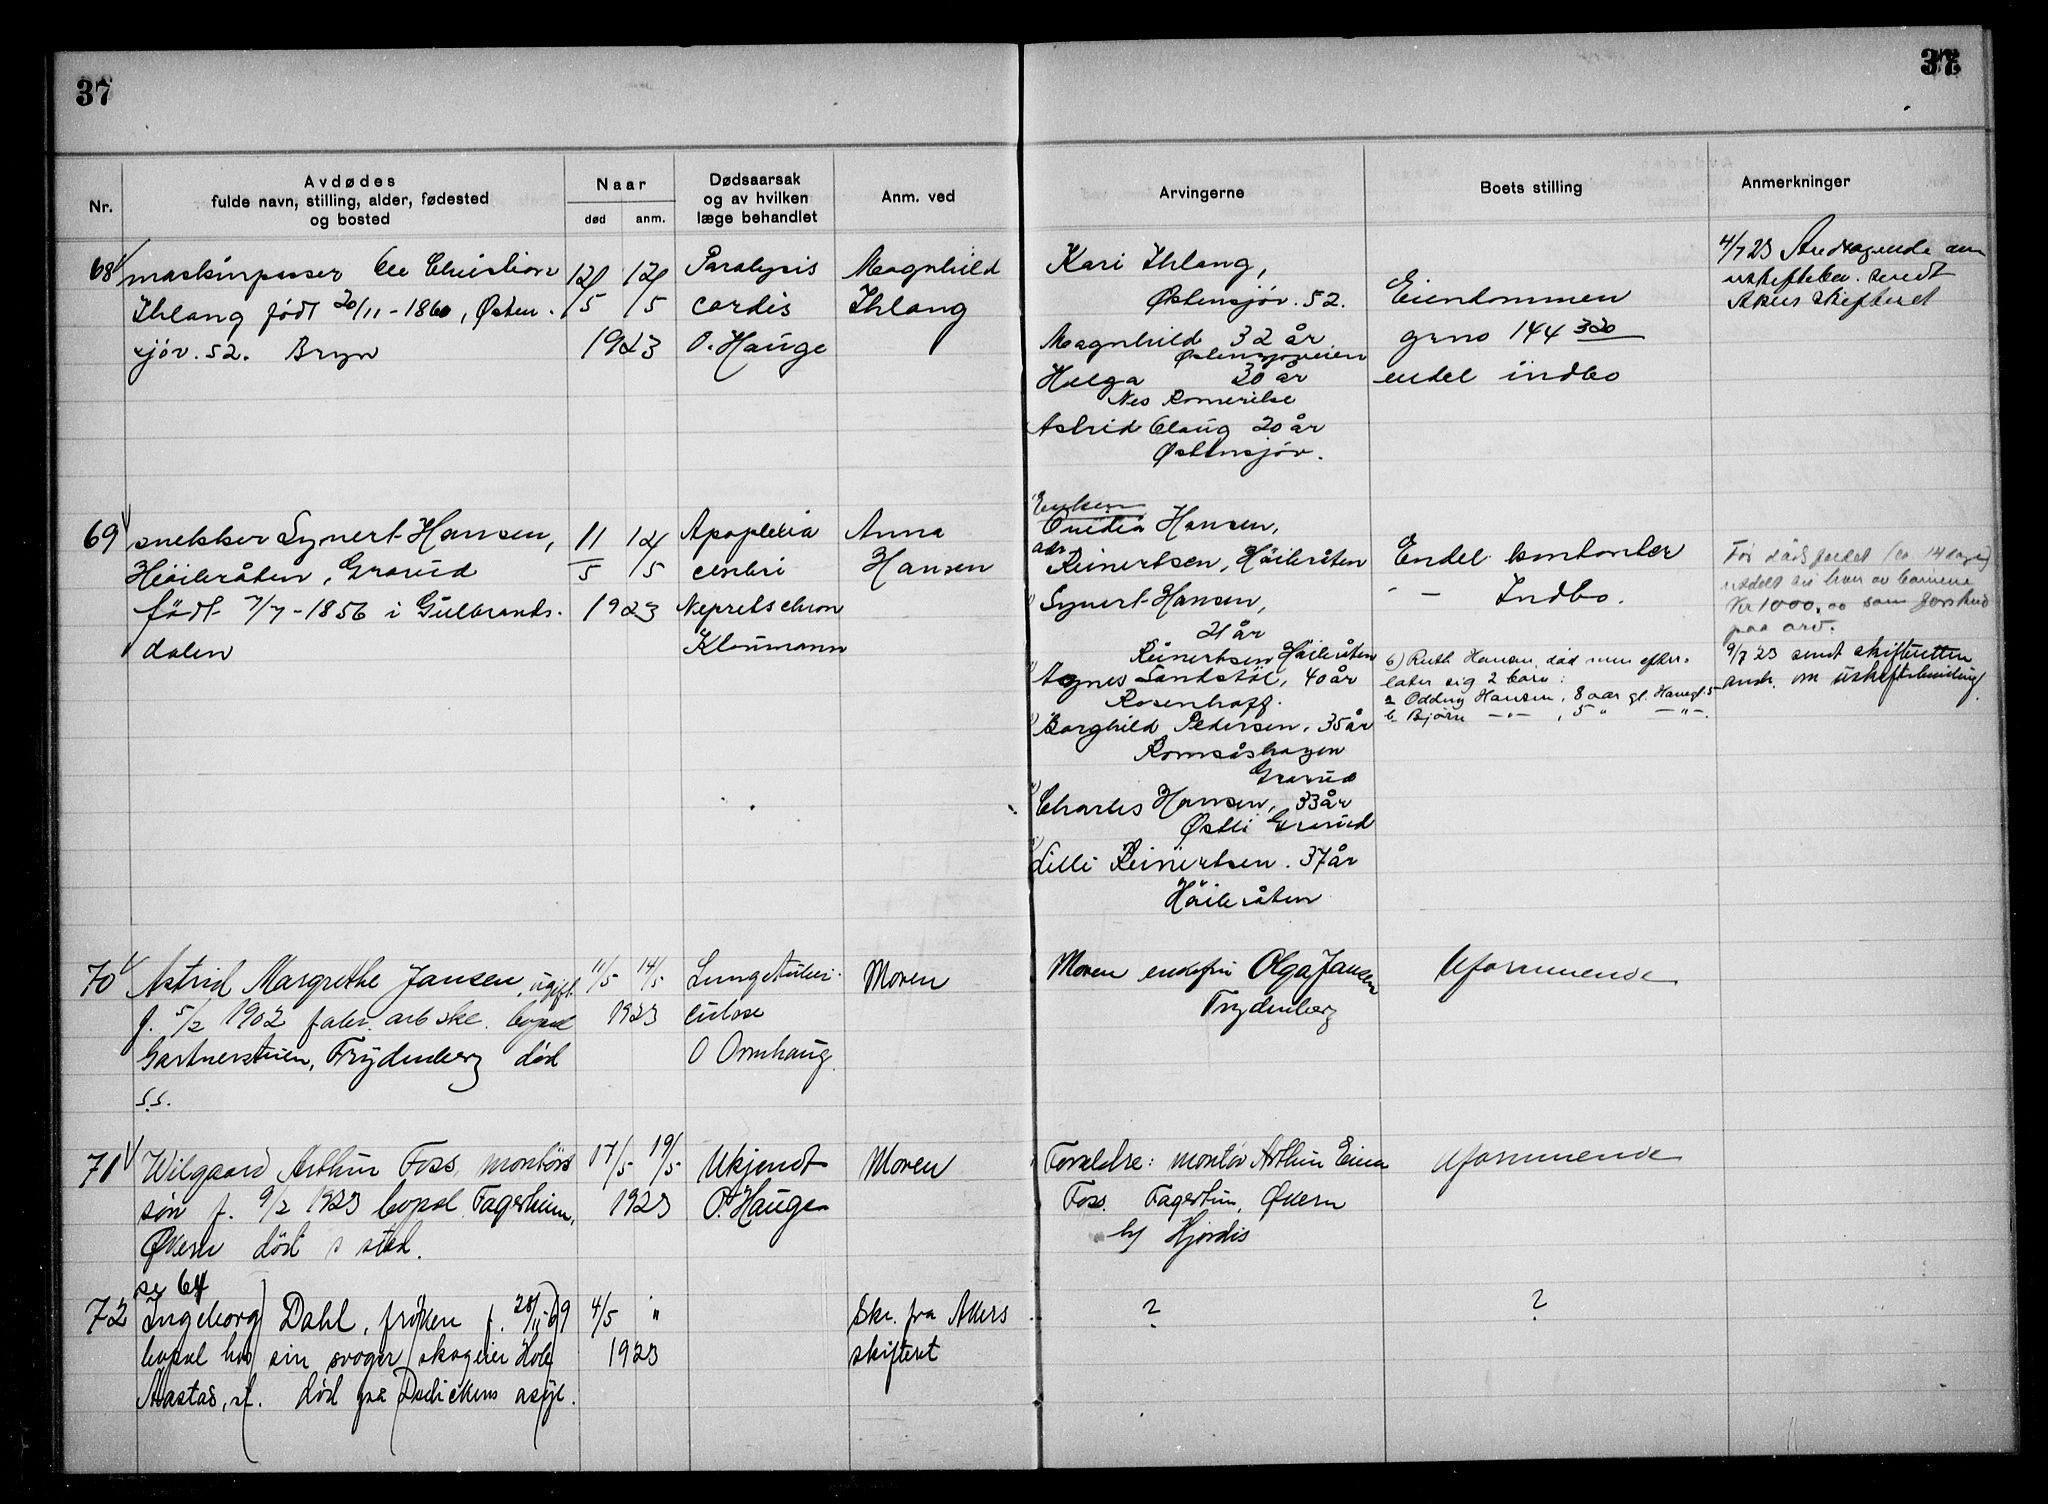 37
37
Nr.
Avdødes
fulde navn, stilling, alder, fødested
og bosted
Naar
død
anm.
Dødsaarsak
og av hvilken
læge behandlet
Anm. ved
Arvingerne
Boets stilling
Anmerkninger
68
maskinpasser Ole Christian
Ihlang født 20/11-1860, Østen.
sjöv. 52. Bryn
12/5 12/5
1923
Paralysis
cordis
O. Hauge
Magnhild
Ihlang
Kari Ihlang,
Østensjöv. 52.
Magnhild 32 år
Østensjøveien
Helga 30 år
Nes Romerike
Astrid Olaug 20 år
Østensjöv.
Eiendommen
grno 144 320
endel indbo
4/7 23 Andragende om
uskiftebev. sendt
Akers skifteret
69
snekker Synert Hansen,
Höibråten, Grorud
født 7/7-1856 i Gulbrands.
dalen
11/5 12/5
1923
Apoplexia
cerebri
Nephritis chron
Kloumann
Anna
Hansen
Enken
Hansen,
Reinertsen, Höibråten
Synert Hansen,
21 år
Reinertsen Höibråten
Agnes Sandstöl, 40 år
Rosenhoff.
Borghild Pedersen, 35 år
Romsåshagen
Grorud
Charles Hansen, 33 år
Østli Grorud
Lilli Reinertsen. 37 år
Höibråten
Endel kontanter
" — Indbo.
6) Ruth Hansen, död men efter-
later sig 2 barn:
a Oddny Hansen, 8 aar gl.
b Bjørn —"—, 5 " —"—.
Før dødsfaldet (ca. 14 dage)
utdelt til hver av barnene
Kr 1000,00 som forskud
paa arv.
9/7 23 sendt skifteretten
andr. om uskiftebevilling
70
Astrid Margrethe Jansen, ugift
f. 5/2 1902 fabr. arb ske. bopæl
Gartnerstuen, Frydenberg død
s.s.
11/5 14/5
1923
Lungetuber-
culose
O Ormhaug
Moren
Moren enkefru Olga Jansen
Frydenberg
Uformuende
71
Wilgaard Arthur Foss, montörs
sön f. 9/2 1923 bopæl Fagerheim,
Økern död s sted.
17/5 19/5
1923
Ukjendt
O. Hauge
Moren
Forældre: montör Arthur Einar
Foss. Fagerheim, Økern
og Hjördis
Uformuende
72
se 64
Ingeborg Dahl, frøken f. 28/11-69
bopæl hos sin svoger skogeier Hole
Aastad, st. död paa Dedichens asyl.
4/5 "
1923
Skr. fra Akers
skifteret
?
?